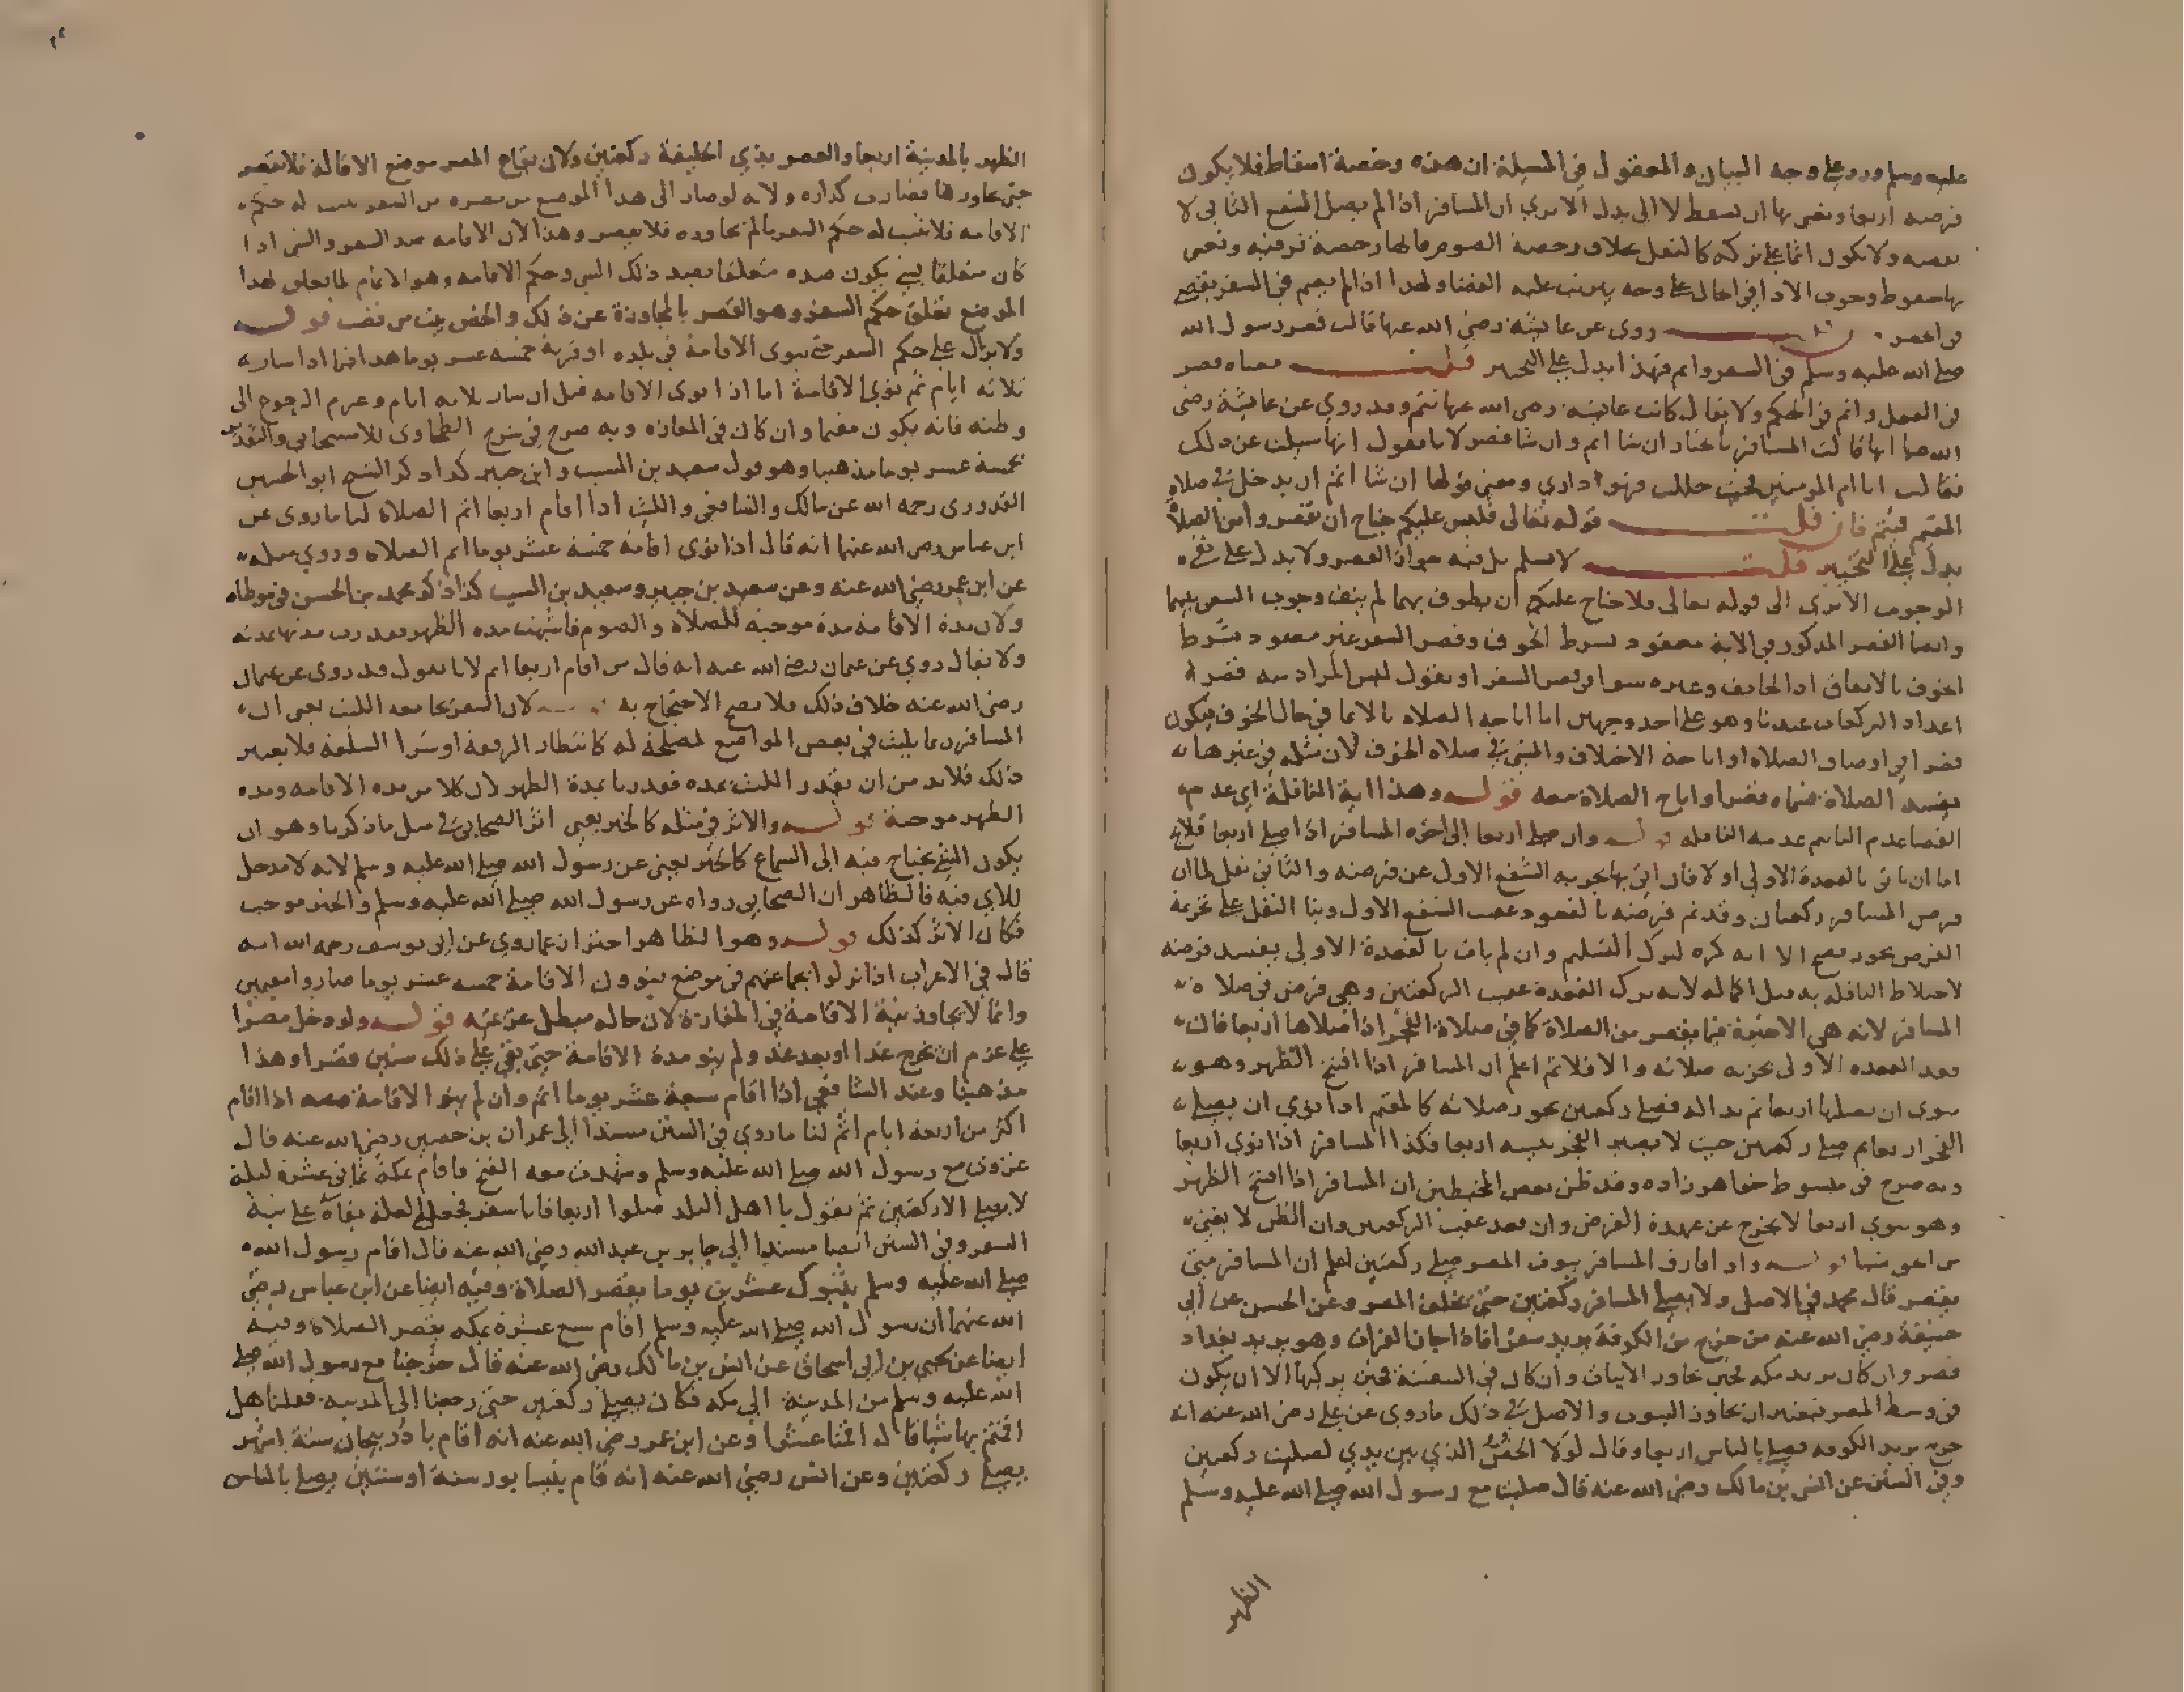 عليه وسلم ورد على وجه البيان والمعقول في المسيلة ان هذه رخصة اسقاط فلا يكون
فرضه اربعا ونعني بها ان يسقط لا الى بدل الا يرى ان المسافر اذا لم يصل الشفع الثاني لا
يقصيه ولا يكون اثما على تركه كالنفل بخلاف رخصة الصوم فانها رخصة ترفيه ونعني
بها سقوط وجوب الادا في الحال على وجه يترتب عليه القضا ولهذا اذا لم يصم في السفر يقضي
روى عن عايشة رضي الله عنها قالت قصر رسول الله
صلى الله عليه وسلم في السفر واتم فهذا يدل على التخيير قلت معناه قصر
في الفعل واتم في الحكم ولا يقال كانت عايشة رضي الله عنها تتم وقد روي عن عايشة رضي
الله عنها انها قالت المسافر بالخيار ان شا اتم وان شا قصر لانا نقول انها سيلت عن ذلك
فقالت انا ام المومنين فحيث حللت فهو داري ومعنى قولها ان شا اتم ان يدخل في صلاة
المقيم فيتم فان قلت قوله تعالى فليس عليكم جناح ان تقصروا من الصلاة
يدل على التخيير قلت لا نسلم بل فيه جواز القصر ولا يدل على نفي
الوجوب الا يرى الى قوله تعالى فلا جناح عليكم ان يطوف بهما لم ينف وجوب السعي بينهما
وايضا القصر المذكور في الاية معقود بشرط الخوف وقصر السفر غير معقود بشرط
الخوف بالاتفاق اذ الخايف وغيره سوا في قصر السفر او نقول ليس المراد منه قصر
اعداد الركعات عندنا وهو على احد وجهين اما اباحة الصلاة بالايما في حال الخوف فيكون
قصرا في اوصاف الصلاة او اباحة الاختلاف والمشي في صلاة الخوف لان مثله في غيرها
يفسد الصلاة فسماه قصرا واباح الصلاة معه قوله وهذا اية النافلة اي عدم
القضا وعدم التاثيم علامة النافلة قوله وان صلى اربعا الى اخره المسافر اذا صلى اربعا فلا يخلو
اما ان ياتي بالقعدة الاولى او لا فان اتى بها يجزيه الشفع الاول عن فرضه والثاني نفل لما ان
فرض المسافر ركعتان وقد تم فرضه بالقعود عقيب الشفع الاول وبنا النفل على تحريمة
الفرض يجوز فيصح الا انه كره لترك التسليم وان لم يات بالقعدة الاولى يفسد فرضه
لاختلاط النافلة به قبل اكماله لانه ترك القعدة عقيب الركعتين وهي فرض في صلاة
المسافر لانه هي الاخيرة فيما يقصر من الصلاة كما في صلاة الفجر اذا صلاها اربعا فان
قعد القعدة الاولى تجزيه صلاته والا فلا ثم اعلم ان المسافر اذا افتتح الظهر وهو
ينوي ان يصليها اربعا ثم بدا له فصلى ركعتين تجوز صلاته كالمقيم اذا نوى ان يصلي
الفجر اربعا ثم صلى ركعتين حيث لا يصير الفجر بنيته اربعا فكذا المسافر اذا نوى اربعا
وبه صرح في مبسوط خواهر زاده وقد ظن بعض المخبطين ان المسافر اذا افتتح الظهر
وهو ينوي اربعا لا يخرج عن عهدة الفرض وان قعد عقيب الركعتين وان الظن لا يغني
من الحق شيا قوله واذا فارق المسافر بيوت المصر صلى ركعتين اعلم ان المسافر متى
يقصر قال محمد في الاصل ولا يصلي المسافر ركعتين حتى يخلف المصر وعن الحسن عن ابي
حنيفة رضي الله عنه من خرج من الكوفة يريد سفرا فاذا جاز الفرات وهو يريد بغداد
قصر وان كان يريد مكة فحين يجاوز الابيات وان كان في السفينة فحين يركبها الا ان يكون
في وسط المصر فيعتبر ان يجاوز البيوت والاصل في ذلك ما روي عن علي رضي الله عنه انه
خرج يريد الكوفة فصلى بالناس اربعا وقال لولا الخص الذي بين يدي لصليت ركعتين
وفي السنن عن انس بن مالك رضي الله عنه قال صليت مع رسول الله صلى الله عليه وسلم
الظهر
الظهر بالمدينة اربعا والعصر بذي الحليفة ركعتين ولان بقاع المصر موضع الاقامة فلا يقصر
حتى يجاوزها فصارت كداره ولانه لو صار الى هذا الموضع من مصره من السفر يثبت له حكم
الاقامة فلا يثبت له حكم السفر ما لم يجاوزه فلا يقصر وهذا لان الاقامة ضد السفر والشي اذا
كان متعلقا بشي يكون ضده متعلقا بضد ذلك الشي وحكم الاقامة وهو الاتمام لما تعلق بهذا
الموضع تعلق حكم السفر وهو القصر بالمجاوزة عن ذلك والخص بيت من قصب قوله
ولا يزال على حكم السفر حتى ينوي الاقامة في بلدة او قرية خمسة عشر يوما هذا فيما اذا سار
ثلاثة ايام ثم نوى الاقامة اما اذا نوى الاقامة قبل ان سار ثلاثة ايام وعزم الرجوع الى
وطنه فانه يكون مقيما وان كان في المفازة وبه صرح في شرح الطحاوي للاسبيجابي والتقدير
بخمسة عشر يوما مذهبنا وهو قول سعيد بن المسيب وابن جبير كذا ذكر الشيخ ابو الحسين
القدوري رحمه الله عن مالك والشافعي والليث اذا اقام اربعا اتم الصلاة لنا ما روى عن
ابن عباس رضي الله عنهما انه قال اذا نوى اقامة خمسة عشر يوما اتم الصلاة وروي مثله
عن ابن عمر رضي الله عنه وعن سعيد بن جبير وسعيد بن المسيب كذا ذكر محمد بن الحسن في موطاه
ولان مدة الاقامة مدة موجبة للصلاة والصوم فاشبهت مدة الطهر فقدرت مدتها بمدته
ولا يقال روي عن عثمان رضي الله عنه انه قال من اقام اربعا اتم لانا نقول قد روى عن عثمان
رضي الله عنه خلاف ذلك فلا يصح الاحتجاج به قوله لان السفر يجامعه اللبث يعني ان
المسافر ربما يلبث في بعض المواضع لمصلحة له كانتظار الرفقة او شرا السلعة فلا يعتبر
ذلك فلا بد من ان يقدر اللبث بمدة فقدرنا بمدة الطهر لان كلا من مدة الاقامة ومدة
الطهر موجبة قوله والاثر في مثله كالخبر يعني اثر الصحابي في مثل ما ذكرنا وهو ان
يكون الشي يحتاج فيه الى السماع كالخبر يعني عن رسول الله صلى الله عليه وسلم لانه لا مدخل
للراي فيه فالظاهر ان الصحابي رواه عن رسول الله صلى الله عليه وسلم والخبر موجب
فكان الاثر كذلك قوله وهو الظاهر احتراز عما روي عن ابي يوسف رحمه الله انه
قال في الاعراب اذا نزلوا بجماعتهم في موضع ينوون الاقامة خمسة عشر يوما صاروا مقيمين
وانما لا يجاوز نية الاقامة في المفازة لان حاله مبطل عزيمته قوله ولو دخل مصرا
على عزم ان يخرج غدا او بعد غد ولم ينو مدة الاقامة حتى بقي على ذلك سنين قصر وهذا
مذهبنا وعند الشافعي اذا اقام سبعة عشر يوما اتم وان لم ينو الاقامة اذا اقام
اكثر من اربعة ايام اتم لنا ما روي في السنن مسندا الى عمران بن حصين رضي الله عنه قال
غزوت مع رسول الله صلى الله عليه وسلم وشهدت معه الفتح فاقام بمكة ثماني عشرة ليلة
لا يصلي الا ركعتين ثم يقول يا اهل البلد صلوا اربعا فانا سفر بقاه على نية
السفر وفي السنن ايضا مسندا الى جابر بن عبد الله رضي الله عنه قال اقام رسول الله
صلى الله عليه وسلم بتبوك عشرين يوما يقصر الصلاة وفيه ايضا عن ابن عباس رضي
الله عنهما ان رسول الله صلى الله عليه وسلم اقام سبع عشرة بمكة يقصر الصلاة وفيه
ايضا عن يحيى بن ابي اسحاق عن انس بن مالك رضي الله عنه قال خرجنا مع رسول الله صلى
الله عليه وسلم من المدينة الى مكة فكان يصلي ركعتين حتى رجعنا الى المدينة فقلنا هل
اقمتم بها شيا قال اقمنا عشرا وعن ابن عمر رضي الله عنه انه اقام باذربيجان ستة اشهر
يصلي ركعتين وعن انس رضي الله عنه انه قام بنيسابور سنة او سنتين يصلي بالناس